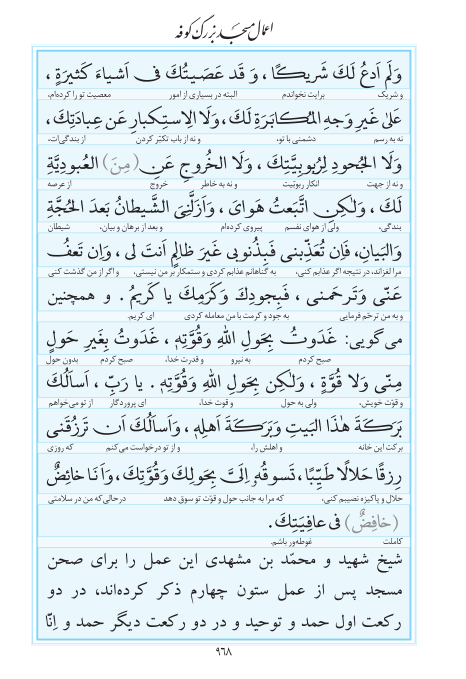 اعمال مسجد بزرگ کوفه
وَلَم اَدعُ لَكَ شَريكًا ، وَ قَد عَصَيتُكَ فى اَشياءَ كَثيرَةٍ ،
و شریک برایت نخواندم البته در بسیاری از امور معصیت تو را کرده‌ام،
عَلىٰ غَيرِ وَجهِ المُكابَرَةِ لَكَ، وَلَا الاِستِكبارِ عَن عِبادَتِكَ،
نه به رسم دشمنی با تو، و نه از باب تکبّر کردن از بندگی‌ات،
وَلَا الجُحودِ لِرُبوبِيَّتِكَ ، وَلَا الخُروجِ عَنِ (مِنَ) العُبودِيَّةِ
و نه از جهت انکار ربوبّیت و نه به خاطر خروج از عرصه
لَكَ ، وَلٰكِنِ اتَّبَعتُ هَواىَ ، وَاَزَلَّنِى الشَّيطانُ بَعدَ الحُجَّةِ
بندگی، ولی از هوای نفسم پیروی کرده‌ام و بعد از برهان و بیان، شیطان
وَالبَيانِ، فَاِن تُعَذِّبنى فَبِذُنوبى غَيرَ ظالِمٍ اَنتَ لى ، وَاِن تَعفُ
مرا لغزاند، در نتیجه اگر عذابم کنی، به گناهانم عذابم کردی و ستمکار بر من نیستی، و اگر از من گذشت کنی
عَنّى وَتَرحَمنى ، فَبِجودِكَ وَكَرَمِكَ يا كَريمُ . و همچنین
و به من ترحّم فرمایی به جود و کرمت با من معامله کردی ای کریم.
می‌گویی: غَدَوتُ بِحَولِ اللهِ وَقُوَّتِهٖ ، غَدَوتُ بِغَيرِ حَولٍ
صبح کردم به نیرو و قدرت خدا، صبح کردم بدون حول
مِنّى وَلا قُوَّةٍ ، وَلٰكِن بِحَولِ اللهِ وَقُوَّتِهٖ . يا رَبِّ ، اَساَلُكَ
و قوّت خویش، ولی به حول و قوت خدا، ای پروردگار از تو می‌خواهم
بَرَكَةَ هٰذَا البَيتِ وَبَرَكَةَ اَهلِهٖ، وَاَساَلُكَ اَن تَرزُقَنى
برکت این خانه و اهلش را، و از تو درخواست می‌کنم که روزی
رِزقًا حَلالًا طَيِّبًا، تَسوقُهٗ اِلَىَّ بِحَولِكَ وَقُوَّتِكَ، وَاَنَا خائِضٌ
حلال و پاکیزه نصیبم کنی، که مرا به جانب حول و قوّت تو سوق دهد درحالی‌که من در سلامتی
(خافِضٌ) فى عافِيَتِكَ.
کاملت غوطه‌ور باشم.
شیخ شهید و محمّد بن مشهدی این عمل را برای صحن
مسجد پس از عمل ستون چهارم ذکر کرده‌اند، در دو
رکعت اول حمد و توحید و در دو رکعت دیگر حمد و اِنّا
۹۶۸